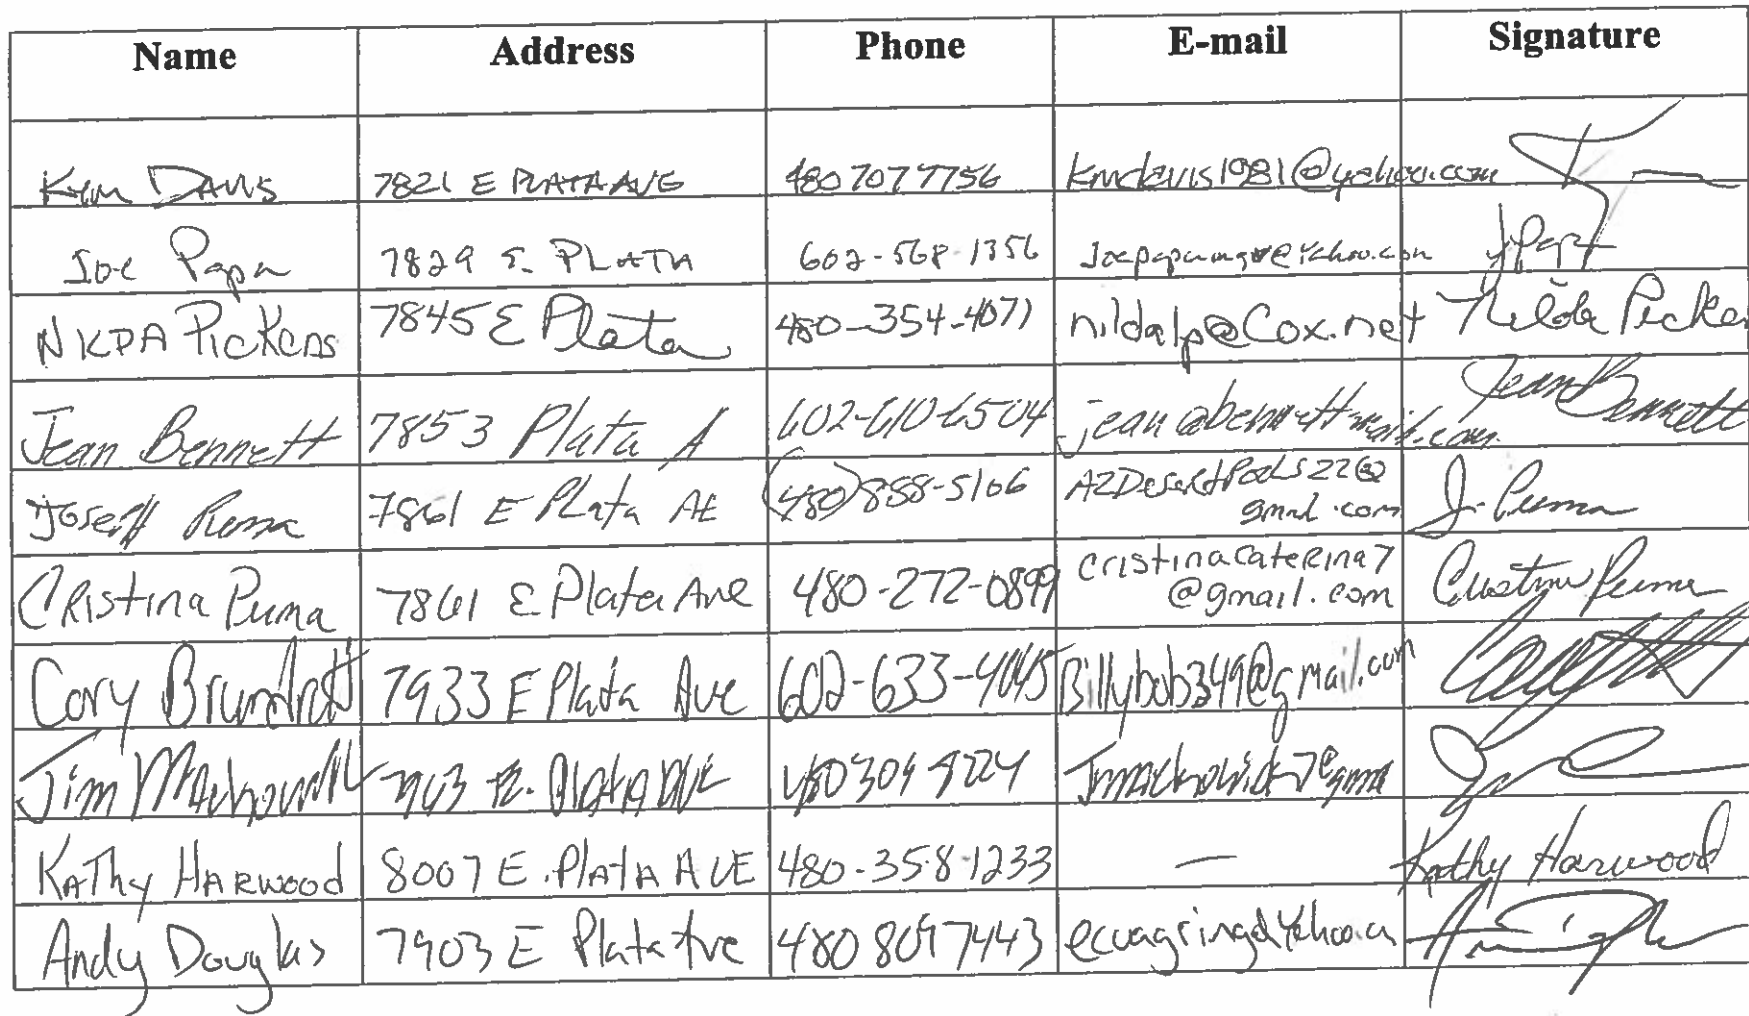 Name Address Phone E-mail Signature
Kym Davis 7821 E PLATA AVE 480 707 7756 kmdavis1981@yahoo.com
Joe Papa 7829 E. PLATA 602-568-1356
NILDA Pickens 7845 E Plata 480-354-4071 nildalp@Cox.net Nilda Picke
Jean Bennett 7853 Plata A 602-610-6504 jean@bennettmail.com Jean Bennett
Joseph Puma 7861 E Plata AE (480) 888-5106 AZDesertPools22@
gmail.com J. Puma
Cristina Puma 7861 E Plata Ave 480-272-0899 cristinacaterina7
@gmail.com Cristina Puma
Cory 7933 E Plata Ave 602-633-4045 Billybob349@gmail.com
Jim E. Plata Ave
Kathy Harwood 8007 E. Plata AVE 480-358-1233 — Kathy Harwood
Andy Douglas 7903 E Plata Ave 480 809 7443